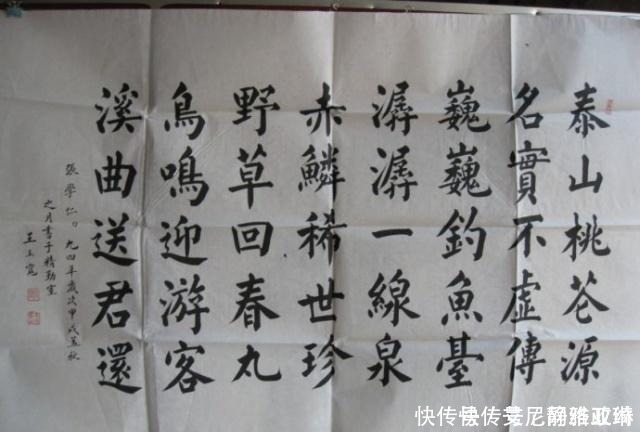 泰山桃花源
名實不虛傳
巍巍釣魚臺
潺潺一線泉
赤鱗稀世珍
野草回春丸
鳥鳴迎游客
溪曲送君還
張學仁
九四年歲次甲戌孟秋
之月書于精勤室
王玉寬
快传号